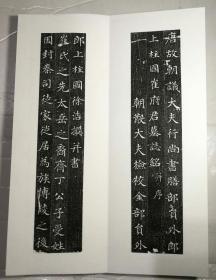 唐故朝議大夫行尚書膳部員外郎
上柱國崔府君墓誌銘 并序
朝散大夫檢校金部員外
郎上柱國徐浩撰并書
崔氏之先太岳之裔齊丁公子受姓
因封秦司徒家徙居為族博陵之後